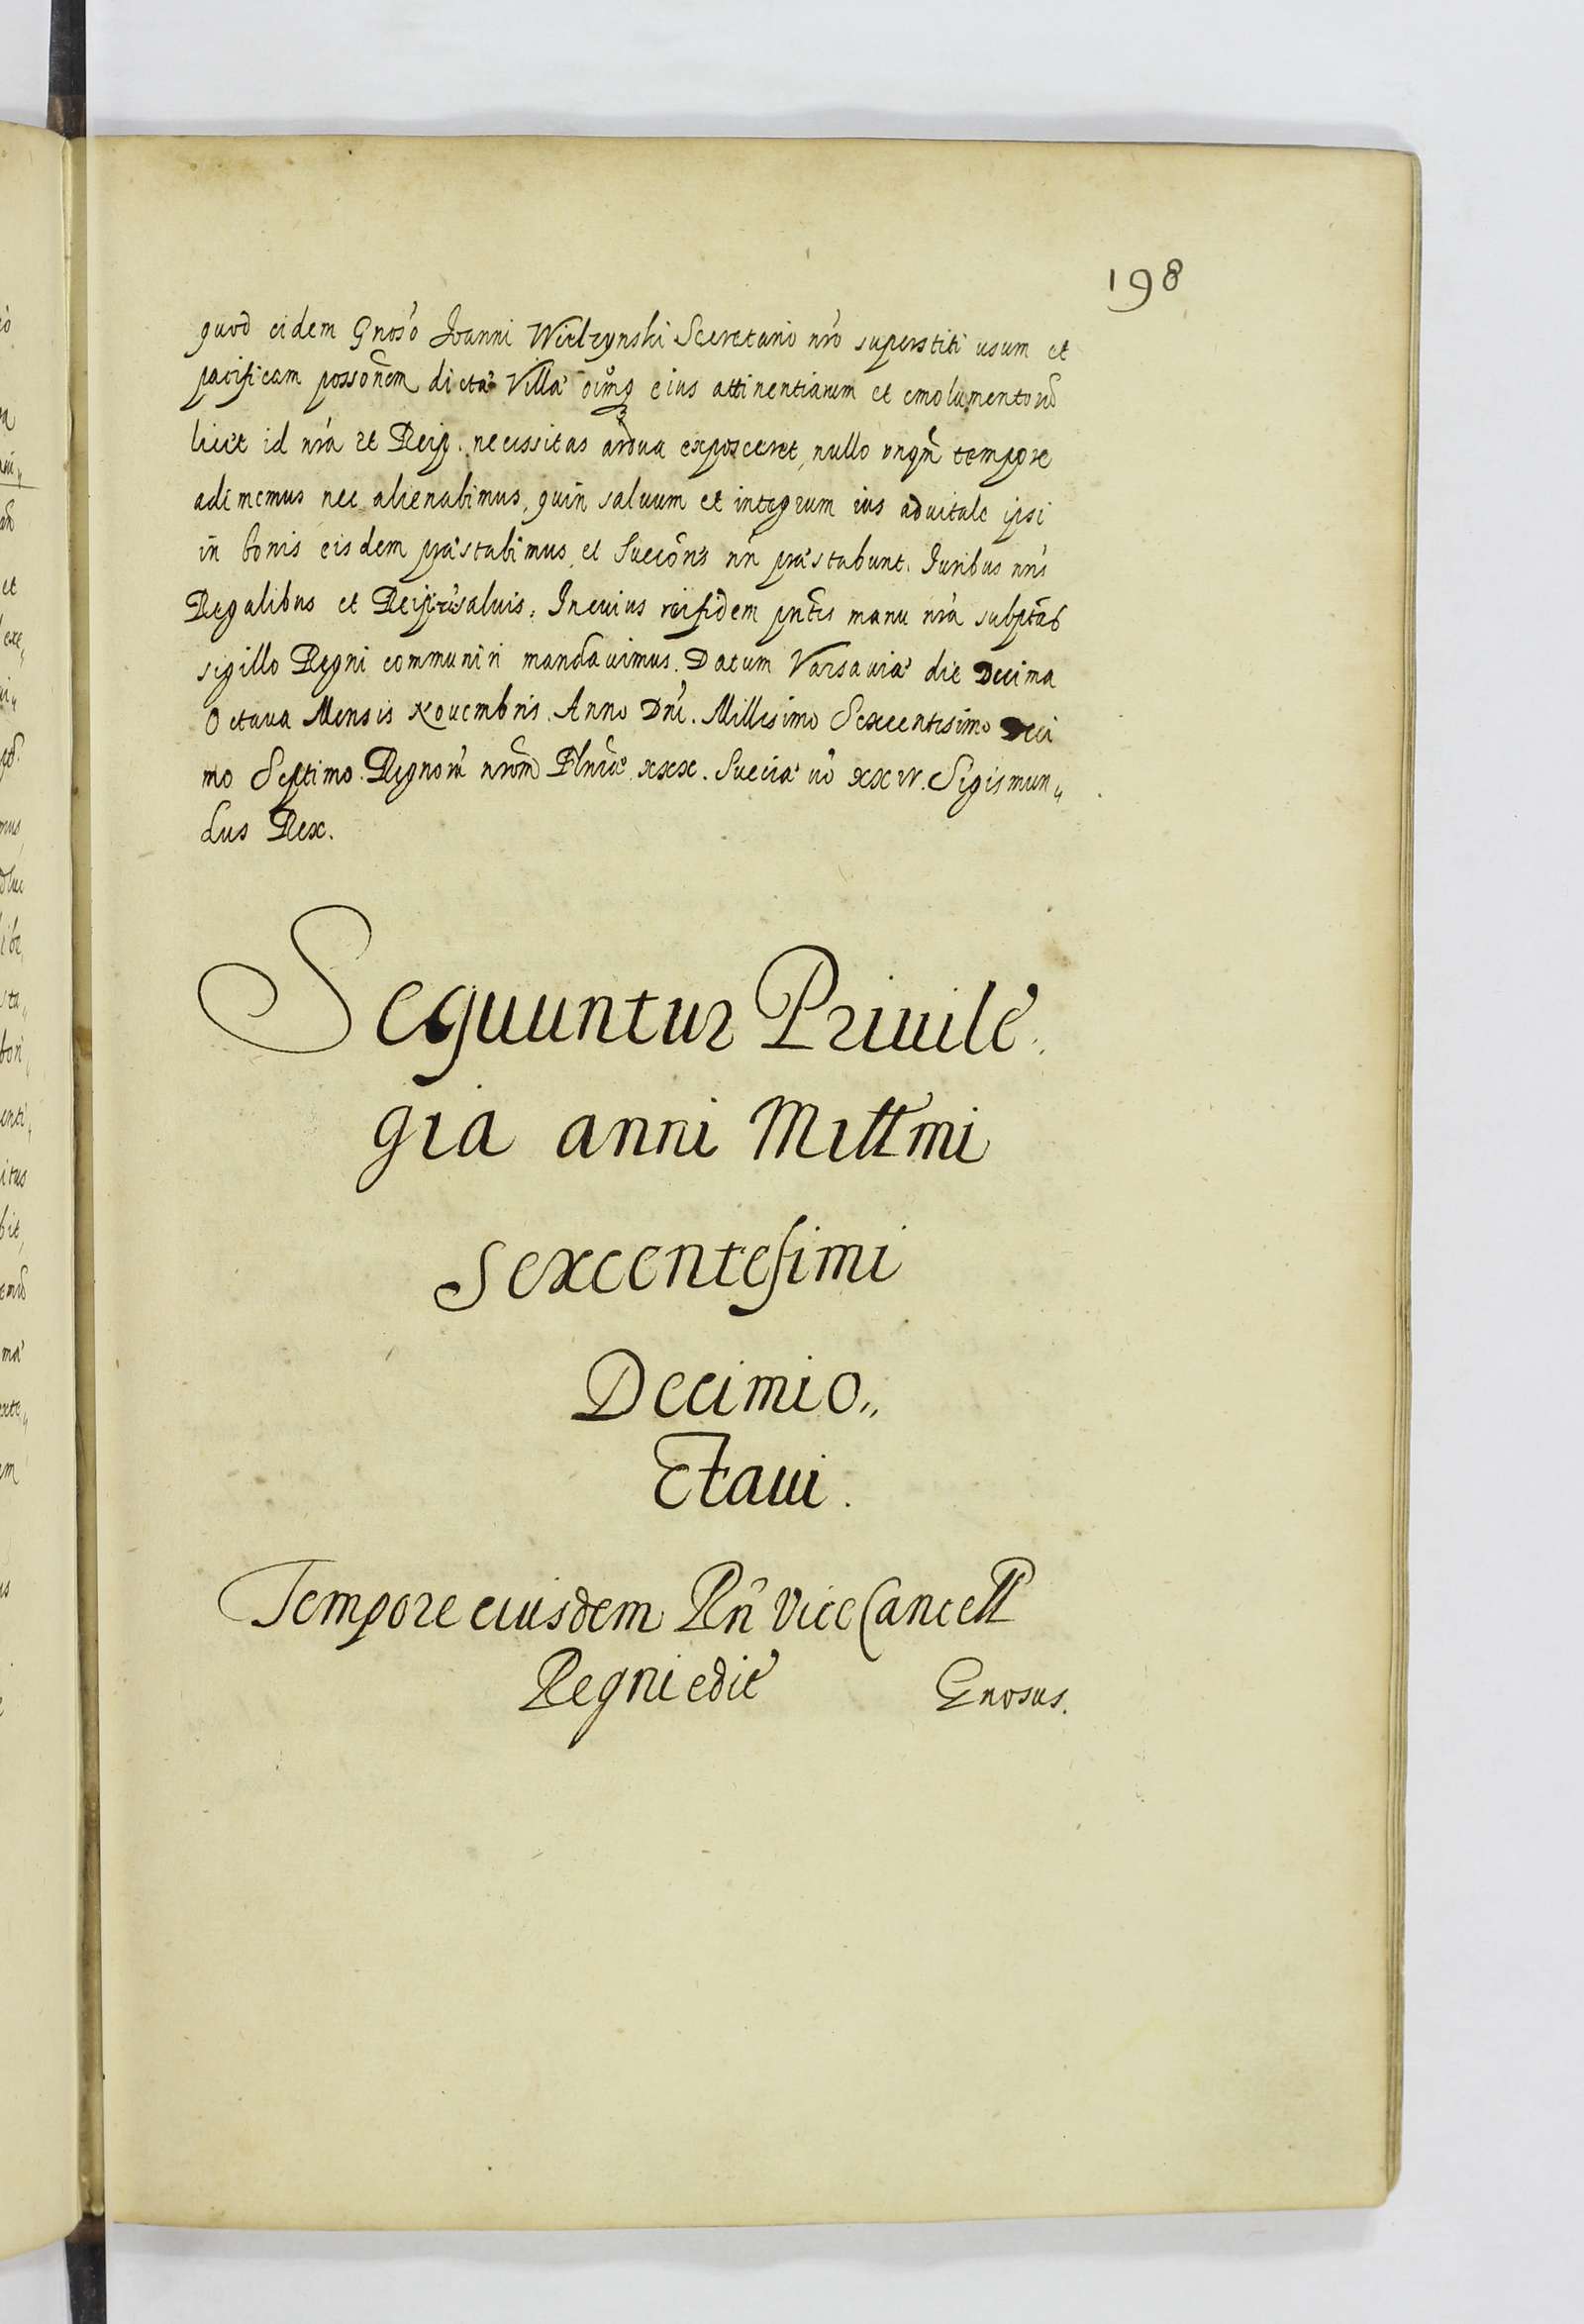 198
quod eidem Gnoso Joanni Wielzynski Secretario nro superstiti usum et
pacificam possonem dictae Villae oiumq eius attinentiarum et emolumentoru
licet id nra et Reip. necessitas ardua exposceret, nullo unqm tempore
adimemus nec alienabimus, quin saluum et integrum ius aduitale ipsi
in bonis eisdem praestabimus, et Succors nri praestabunt. Iuribus nris
Regalibus et Reip. saluis. In cuius rei fidem pntes manu nra subptas
sigillo Regni communiri mandauimus. Datum Varsauiae die Decima
Octaua Mensis Nouembris. Anno Dni. Millesimo Sexcentesimo Deci
mo Septimo. Regnoru nrorum Plniae xxx. Sueciae uo xxiv. Sigismun„
dus Rex.
Sequuntur Priuile
gia anni Millmi
sexcentesimi
Decimi o„
Ctaui.
Tempore eiusdem Rn ViceCancell
Regni edit
Gnosus.